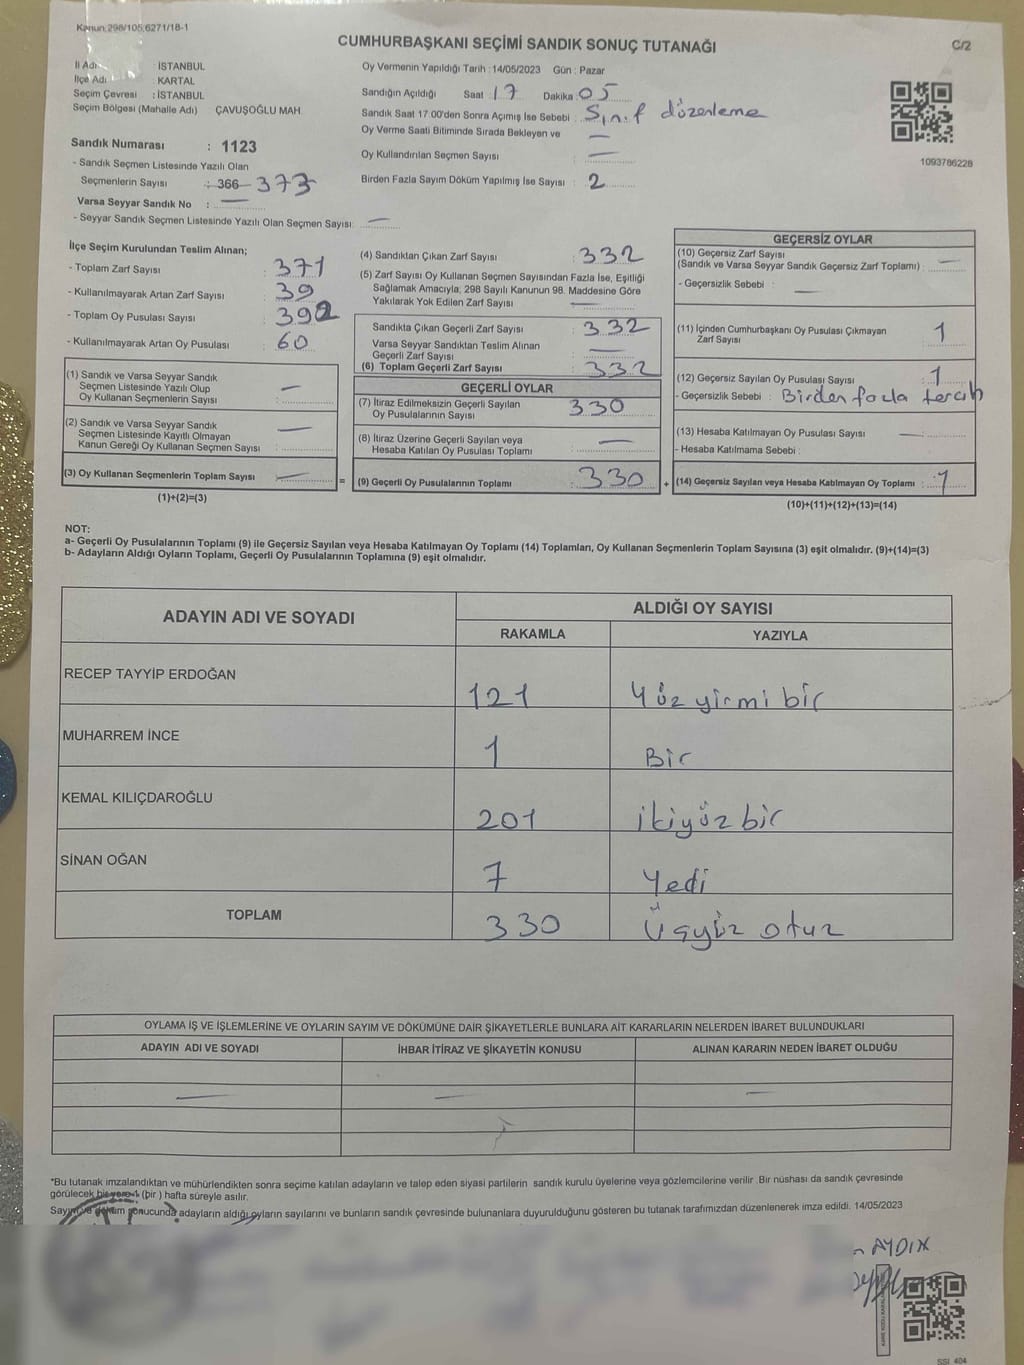 Kanun:298/105;6271/18-1
CUMHURBAŞKANI SEÇİMİ SANDIK SONUÇ TUTANAĞI
C/2
İl Adı : İSTANBUL
İlçe Adı : KARTAL
Seçim Çevresi : İSTANBUL
Seçim Bölgesi (Mahalle Adı) ÇAVUŞOĞLU MAH
Sandık Numarası : 1123
- Sandık Seçmen Listesinde Yazılı Olan
Seçmenlerin Sayısı : 366 373
Varsa Seyyar Sandık No : —
- Seyyar Sandık Seçmen Listesinde Yazılı Olan Seçmen Sayısı: —
Oy Vermenin Yapıldığı Tarih : 14/05/2023 Gün : Pazar
Sandığın Açıldığı Saat 17 Dakika 05
Sandık Saat 17.00'den Sonra Açımış İse Sebebi : Sınıf düzenleme
Oy Verme Saati Bitiminde Sırada Bekleyen ve —
Oy Kullandırılan Seçmen Sayısı : —
Birden Fazla Sayım Döküm Yapılmış İse Sayısı : 2
1093786228
İlçe Seçim Kurulundan Teslim Alınan;
- Toplam Zarf Sayısı : 371
- Kullanılmayarak Artan Zarf Sayısı : 39
- Toplam Oy Pusulası Sayısı : 392
- Kullanılmayarak Artan Oy Pusulası : 60
(1) Sandık ve Varsa Seyyar Sandık
Seçmen Listesinde Yazılı Olup
Oy Kullanan Seçmenlerin Sayısı : —
(2) Sandık ve Varsa Seyyar Sandık
Seçmen Listesinde Kayıtlı Olmayan
Kanun Gereği Oy Kullanan Seçmen Sayısı : —
(3) Oy Kullanan Seçmenlerin Toplam Sayısı : —
(1)+(2)=(3)
(4) Sandıktan Çıkan Zarf Sayısı : 332
(5) Zarf Sayısı Oy Kullanan Seçmen Sayısından Fazla İse, Eşitliği
Sağlamak Amacıyla; 298 Sayılı Kanunun 98. Maddesine Göre
Yakılarak Yok Edilen Zarf Sayısı : —
Sandıkta Çıkan Geçerli Zarf Sayısı : 332
Varsa Seyyar Sandıktan Teslim Alınan
Geçerli Zarf Sayısı : —
(6) Toplam Geçerli Zarf Sayısı : 332
GEÇERLİ OYLAR
(7) İtiraz Edilmeksizin Geçerli Sayılan
Oy Pusulalarının Sayısı : 330
(8) İtiraz Üzerine Geçerli Sayılan veya
Hesaba Katılan Oy Pusulası Toplamı : —
= (9) Geçerli Oy Pusulalarının Toplamı : 330
GEÇERSİZ OYLAR
(10) Geçersiz Zarf Sayısı
(Sandık ve Varsa Seyyar Sandık Geçersiz Zarf Toplamı) : —
- Geçersizlik Sebebi : —
(11) İçinden Cumhurbaşkanı Oy Pusulası Çıkmayan
Zarf Sayısı : 1
(12) Geçersiz Sayılan Oy Pusulası Sayısı : 1
- Geçersizlik Sebebi : Birden fazla tercih
(13) Hesaba Katılmayan Oy Pusulası Sayısı : —
- Hesaba Katılmama Sebebi :
+ (14) Geçersiz Sayılan veya Hesaba Katılmayan Oy Toplamı : 1
(10)+(11)+(12)+(13)=(14)
NOT:
a- Geçerli Oy Pusulalarının Toplamı (9) ile Geçersiz Sayılan veya Hesaba Katılmayan Oy Toplamı (14) Toplamları, Oy Kullanan Seçmenlerin Toplam Sayısına (3) eşit olmalıdır. (9)+(14)=(3)
b- Adayların Aldığı Oyların Toplamı, Geçerli Oy Pusulalarının Toplamına (9) eşit olmalıdır.
ADAYIN ADI VE SOYADI
ALDIĞI OY SAYISI
RAKAMLA YAZIYLA
RECEP TAYYİP ERDOĞAN 121 Yüz yirmi bir
MUHARREM İNCE 1 Bir
KEMAL KILIÇDAROĞLU 201 ikiyüz bir
SİNAN OĞAN 7 Yedi
TOPLAM 330 Üçyüz otuz
OYLAMA İŞ VE İŞLEMLERİNE VE OYLARIN SAYIM VE DÖKÜMÜNE DAİR ŞİKAYETLERLE BUNLARA AİT KARARLARIN NELERDEN İBARET BULUNDUKLARI
ADAYIN ADI VE SOYADI İHBAR İTİRAZ VE ŞİKAYETİN KONUSU ALINAN KARARIN NEDEN İBARET OLDUĞU
— — —
*Bu tutanak imzalandıktan ve mühürlendikten sonra seçime katılan adayların ve talep eden siyasi partilerin sandık kurulu üyelerine veya gözlemcilerine verilir .Bir nüshası da sandık çevresinde
görülecek bir yere 1 (bir ) hafta süreyle asılır.
Sayım ve döküm sonucunda adayların aldığı oyların sayılarını ve bunların sandık çevresinde bulunanlara duyurulduğunu gösteren bu tutanak tarafımızdan düzenlenerek imza edildi. 14/05/2023
AYDIN
SSI_404